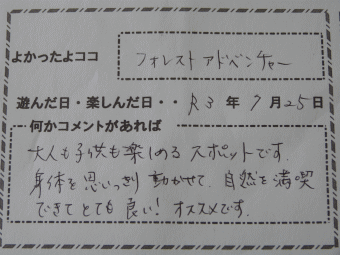 よかったよココ フォレストアドベンチャー
遊んだ日・楽しんだ日・・ R3 年 7 月 25 日
何かコメントがあれば
大人も子供も楽しめるスポットです.
身体を思いっきり動かせて、自然を満喫
できてとても良い! オススメです.